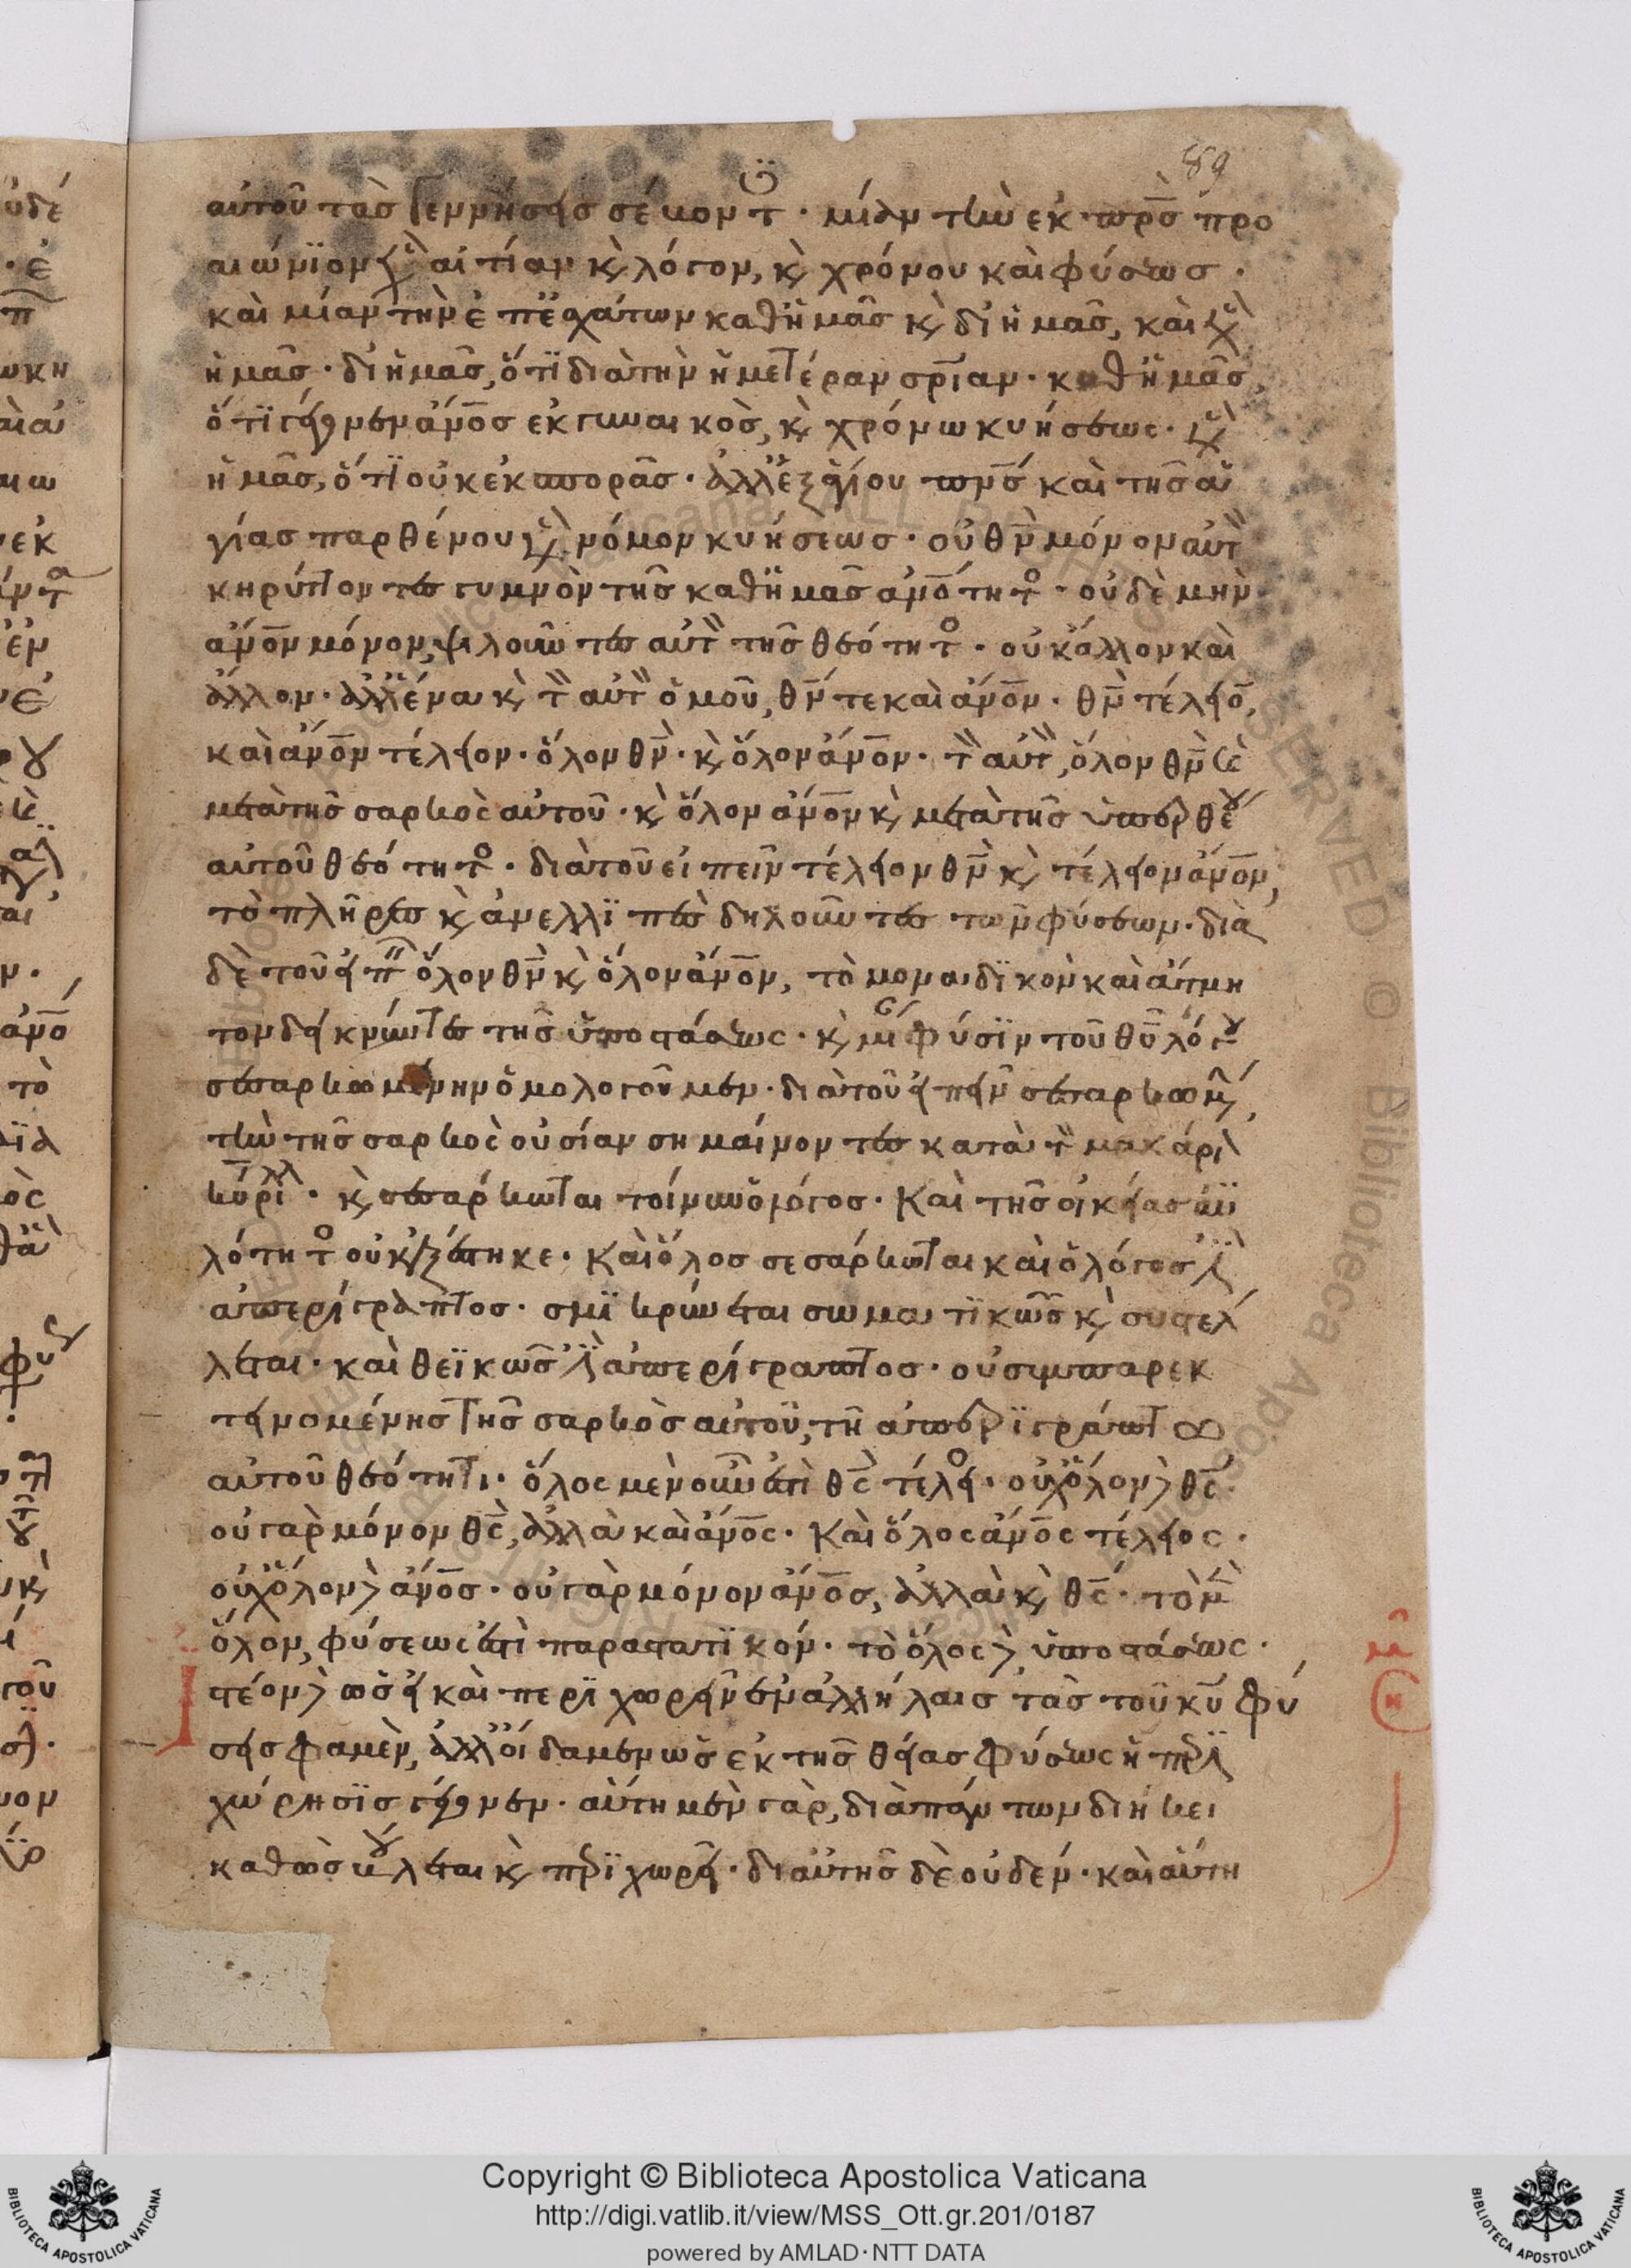 89
αὐτοῦ τὰσ γεννήσεισ σέβοντ · μίαν τὴν ἐκ πρ̅σ̅ προ
αιώνιον ὑπὲρ αἰτίαν κ̀ λόγον, κ̀ χρόνον καὶ φύσιν ·
καὶ μίαν τὴν ἐπ ἐσχάτων καθ ἡμᾶσ κ̀ δι ἡμᾶσ, καὶ ὑπὲρ
ἡμᾶσ · δι ἡμᾶσ, ὅτι διὰ τὴν ἡμετέραν σρ̅ίαν · καθ ἡμᾶσ,
ὅτι γέγονεν ἄνο̅σ ἐκ γυναικὸσ, κ̀ χρόνω κυήσεως · ὑπὲρ
ἡμᾶσ, ὅτι οὐκ ἐκ σπορᾶσ · ἀλλ ἐξ ἁγίου πν̅σ̅ καὶ τῆσ ἁ
γίας παρθένου ὑπὲρ νόμον κυήσεωσ · οὐ θν̅ μόνον αὐτ
κηρύττοντες γυμνὸν τῆσ καθ ἡμᾶσ ἀνο̅τητο · οὐδὲ μὴν
ἄνο̅ν μόνον, ψιλοῦντες αὐτ τῆσ θεότητο · οὐκ ἄλλον καὶ
ἄλλον · ἀλλ ἕνα κ̀ τ αὐτ ὁμοῦ, θν̅ τε καὶ ἄνο̅ν · θν̅ τέλειο,
καὶ ἄνο̅ν τέλειον · ὅλον θν̅ · κ̀ ὅλον ἄνο̅ν · τ αὐτ, ὅλον θν̅ κ̀
μετὰ τῆσ σαρκὸς αὐτοῦ · κ̀ ὅλον ἄνο̅ν κ̀ μετὰ τῆσ ὑπερθέου
αὐτοῦ θεότητο · διὰ τοῦ εἰπεῖν τέλειον θν̅ κ̀ τέλειον ἄνο̅ν,
τὸ πλῆρεσ κ̀ ἀνελλιπὲσ δηλοῦντες τῶν φύσεων · διὰ
δὲ τοῦ εἰπ ὅλον θν̅ κ̀ ὅλον ἄνο̅ν, τὸ μοναδικὸν καὶ ἄτμη
τον δεικνύντες τῆσ ὑποστάσεως · κ̀ μί φύσιν τοῦ θυ̅ λόγου
σεσαρκωμένην ὁμολογοῦμεν · διὰ τοῦ εἰπεῖν σεσαρκωμ,
τὴν τῆσ σαρκὸς οὐσίαν σημαίνοντες κατὰ τ μακάρι
κύρι · κ̀ σεσάρκωται τοίνυν ὁ λόγοσ · Καὶ τῆσ οἰκείασ ἀϋ
λότητο οὐκ ἐξέστηκε · Καὶ ὅλοσ σεσάρκωται καὶ ὅλόγοσ ἐστὶν
ἀπερίγραπτοσ · σμικρύνεται σωματικῶσ κ̀ συστέλ
λεται · καὶ θεϊκῶσ ἐστὶν ἀπερίγραπτοσ · οὐ συμπαρεκ
τεινομένησ τῆσ σαρκὸσ αὐτοῦ, τῆ ἀπεριγράπτω
αὐτοῦ θεότητι · ὅλος μὲν οὖν ἐστὶ θς̅ τέλει · οὐχ ὅλον δὲ θς̅ ·
οὐ γὰρ μόνον θς̅, ἀλλὰ καὶ ἄνο̅ς · Καὶ ὅλος ἄνο̅ς τέλειος ·
οὐχ ὅλον δὲ ἄνο̅σ · οὐ γὰρ μόνον ἄνο̅σ, ἀλλὰ κ̀ θς̅ · τὸ μ
ὅλον, φύσεως ἐστὶ παραστατικόν · τὸ ὅλος δὲ ὑποστάσεως ·
στέον δὲ ὡσ εἰ καὶ περιχωρεῖν ἐν ἀλλήλαισ τὰσ τοῦ κυ̅ φύ
σεισ φαμὲν, ἀλλ οἴδαμεν ὡσ ἐκ τῆσ θείασ φύσεως ἡ περι
χώρησισ γέγονεν · αὕτη μὲν γὰρ, διὰ πάντων διήκει
καθὼσ βούλεται κ̀ περιχωρεῖ · δι αὐτῆσ δὲ οὐδέν · καὶ αὕτη
Copyright © Biblioteca Apostolica Vaticana
http://digi.vatlib.it/view/MSS_Ott.gr.201/0187
powered by AMLAD·NTT DATA
BIBLIOTECA APOSTOLICA VATICANA
BIBLIOTECA APOSTOLICA VATICANA